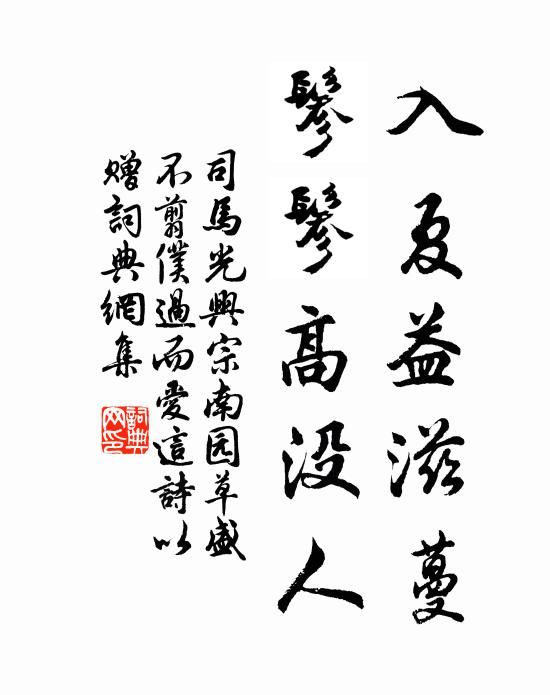 入夏益滋蔓
鬖鬖高没人
司馬光興宗南园草盛
不剪僕過而愛這詩以
贈詞典網集
詞典
网印